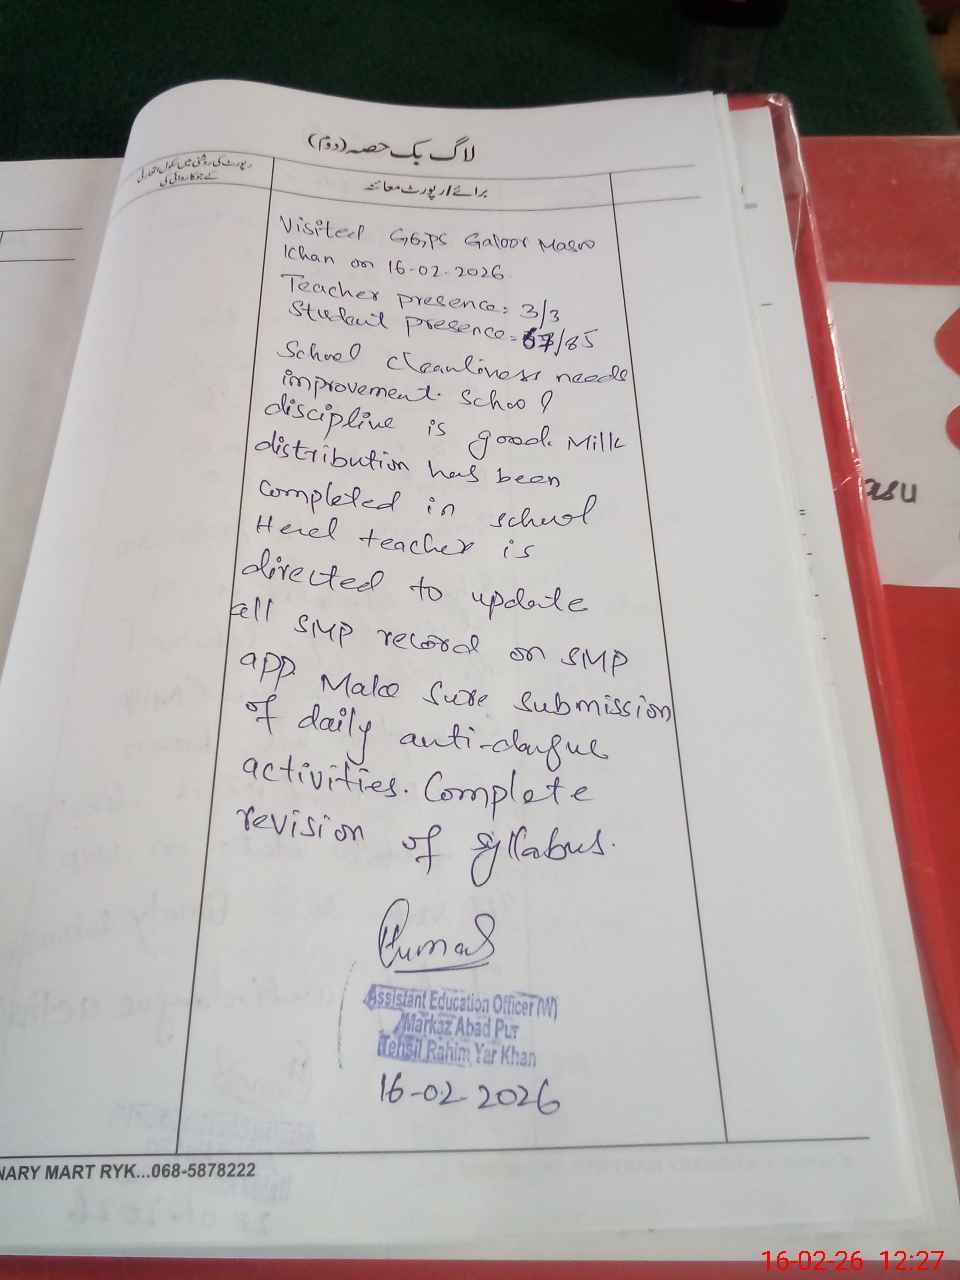 لاگ بک حصہ (دوم)
رپورٹ کی روشنی میں سکول
برائے رپورٹ معائنہ
Visited GGPS Galoor Maso
Khan on 16-02-2026
Teacher presence: 3/3
Student presence = 67/85
School cleanliness needs
improvement. School
discipline is good. Milk
distribution has been
completed in school
Head teacher is
directed to update
all SMP record on SMP
app. Make sure submission
of daily anti-dengue
activities. Complete
revision of syllabus.
Assistant Education Officer (W)
Markaz Abad Pur
Tehsil Rahim Yar Khan
16-02-2026
NARY MART RYK...068-5878222
asu
16-02-26 12:27